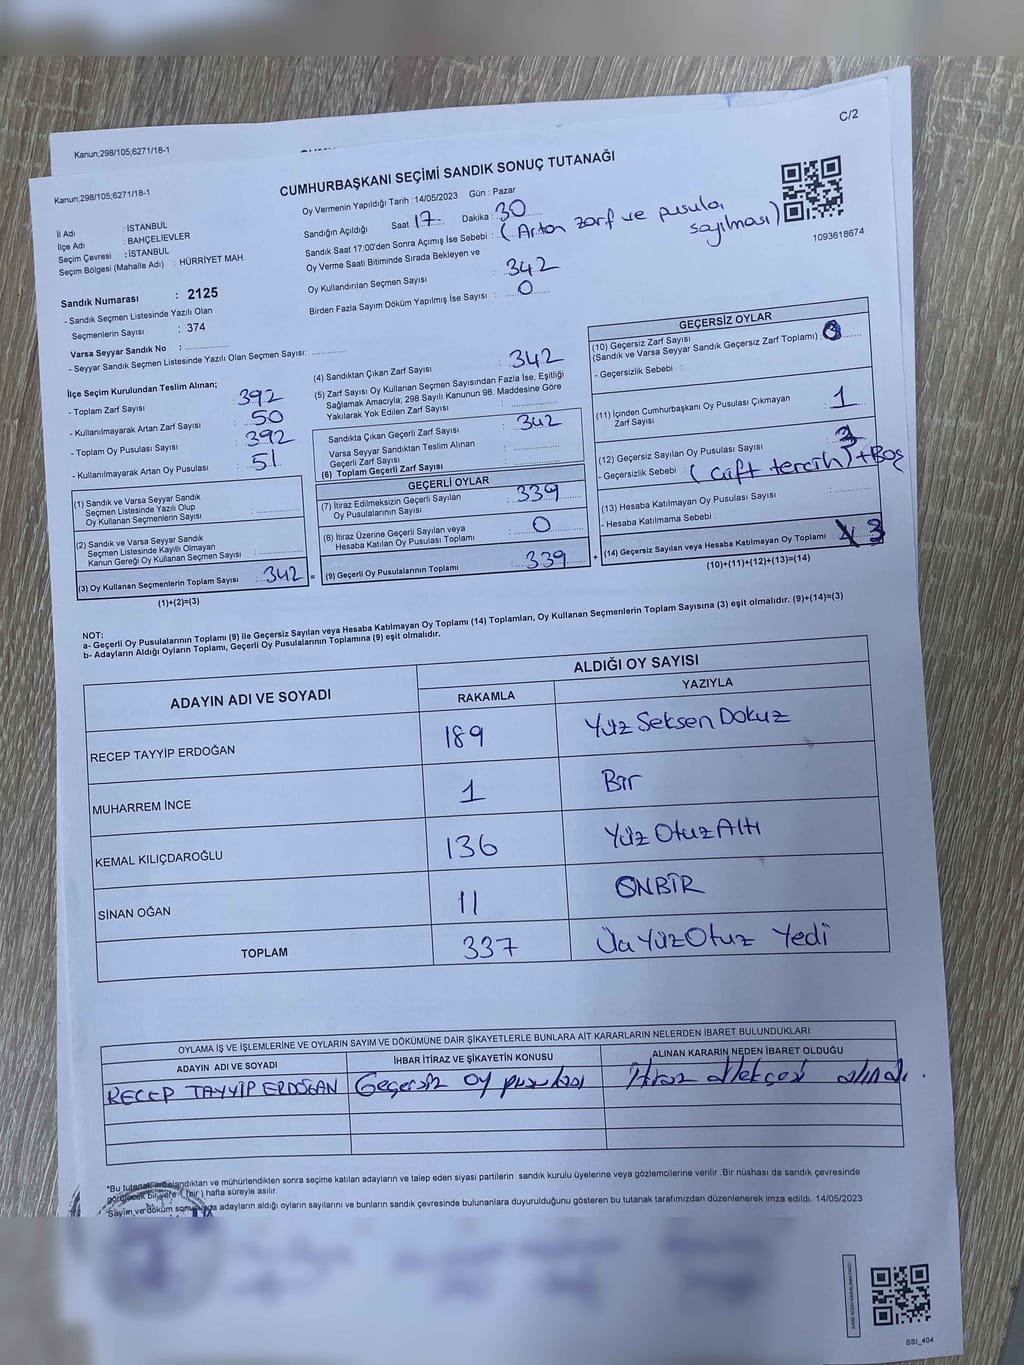 Kanun;298/105;6271/18-1
C/2
Kanun;298/105;6271/18-1
CUMHURBAŞKANI SEÇİMİ SANDIK SONUÇ TUTANAĞI
İl Adı : İSTANBUL
İlçe Adı : BAHÇELİEVLER
Seçim Çevresi : İSTANBUL
Seçim Bölgesi (Mahalle Adı) : HÜRRİYET MAH.
Oy Vermenin Yapıldığı Tarih : 14/05/2023 Gün : Pazar
Sandığın Açıldığı Saat 17 Dakika : 30
Sandık Saat 17:00'den Sonra Açımış İse Sebebi : (Artan zarf ve pusula sayılması)
Oy Verme Saati Bitiminde Sırada Bekleyen ve
Oy Kullandırılan Seçmen Sayısı : 342
Birden Fazla Sayım Döküm Yapılmış İse Sayısı : 0
1093618674
Sandık Numarası : 2125
- Sandık Seçmen Listesinde Yazılı Olan
Seçmenlerin Sayısı : 374
Varsa Seyyar Sandık No :
- Seyyar Sandık Seçmen Listesinde Yazılı Olan Seçmen Sayısı:
İlçe Seçim Kurulundan Teslim Alınan;
- Toplam Zarf Sayısı : 392
- Kullanılmayarak Artan Zarf Sayısı : 50
- Toplam Oy Pusulası Sayısı : 392
- Kullanılmayarak Artan Oy Pusulası : 51
(1) Sandık ve Varsa Seyyar Sandık
Seçmen Listesinde Yazılı Olup
Oy Kullanan Seçmenlerin Sayısı :
(2) Sandık ve Varsa Seyyar Sandık
Seçmen Listesinde Kayıtlı Olmayan
Kanun Gereği Oy Kullanan Seçmen Sayısı :
(3) Oy Kullanan Seçmenlerin Toplam Sayısı : 342 =
(1)+(2)=(3)
(4) Sandıktan Çıkan Zarf Sayısı : 342
(5) Zarf Sayısı Oy Kullanan Seçmen Sayısından Fazla İse, Eşitliği
Sağlamak Amacıyla; 298 Sayılı Kanunun 98. Maddesine Göre
Yakılarak Yok Edilen Zarf Sayısı :
Sandıkta Çıkan Geçerli Zarf Sayısı : 342
Varsa Seyyar Sandıktan Teslim Alınan
Geçerli Zarf Sayısı :
(6) Toplam Geçerli Zarf Sayısı
GEÇERLİ OYLAR
(7) İtiraz Edilmeksizin Geçerli Sayılan
Oy Pusulalarının Sayısı : 339
(8) İtiraz Üzerine Geçerli Sayılan veya
Hesaba Katılan Oy Pusulası Toplamı : 0
(9) Geçerli Oy Pusulalarının Toplamı : 339 +
GEÇERSİZ OYLAR
(10) Geçersiz Zarf Sayısı
(Sandık ve Varsa Seyyar Sandık Geçersiz Zarf Toplamı) :
- Geçersizlik Sebebi :
(11) İçinden Cumhurbaşkanı Oy Pusulası Çıkmayan
Zarf Sayısı : 1
(12) Geçersiz Sayılan Oy Pusulası Sayısı
- Geçersizlik Sebebi : (Çift tercih) + Boş
(13) Hesaba Katılmayan Oy Pusulası Sayısı
- Hesaba Katılmama Sebebi :
(14) Geçersiz Sayılan veya Hesaba Katılmayan Oy Toplamı : 3
(10)+(11)+(12)+(13)=(14)
NOT:
a- Geçerli Oy Pusulalarının Toplamı (9) ile Geçersiz Sayılan veya Hesaba Katılmayan Oy Toplamı (14) Toplamları, Oy Kullanan Seçmenlerin Toplam Sayısına (3) eşit olmalıdır. (9)+(14)=(3)
b- Adayların Aldığı Oyların Toplamı, Geçerli Oy Pusulalarının Toplamına (9) eşit olmalıdır.
ADAYIN ADI VE SOYADI ALDIĞI OY SAYISI
RAKAMLA YAZIYLA
RECEP TAYYİP ERDOĞAN 189 Yüz Seksen Dokuz
MUHARREM İNCE 1 Bir
KEMAL KILIÇDAROĞLU 136 Yüz Otuz Altı
SİNAN OĞAN 11 ONBİR
TOPLAM 337 Üç Yüz Otuz Yedi
OYLAMA İŞ VE İŞLEMLERİNE VE OYLARIN SAYIM VE DÖKÜMÜNE DAİR ŞİKAYETLERLE BUNLARA AİT KARARLARIN NELERDEN İBARET BULUNDUKLARI
ADAYIN ADI VE SOYADI İHBAR İTİRAZ VE ŞİKAYETİN KONUSU ALINAN KARARIN NEDEN İBARET OLDUĞU
RECEP TAYYİP ERDOĞAN Geçersiz oy pusulası İtiraz dilekçesi alındı.
*Bu tutanak
landıktan ve mühürlendikten sonra seçime katılan adayların ve talep eden siyasi partilerin sandık kurulu üyelerine veya gözlemcilerine verilir .Bir nüshası da sandık çevresinde
görülecek bir yere 1 (bir ) hafta süreyle asılır.
Sayım ve döküm sonucunda adayların aldığı oyların sayılarını ve bunların sandık çevresinde bulunanlara duyurulduğunu gösteren bu tutanak tarafımızdan düzenlenerek imza edildi. 14/05/2023
SSI_404